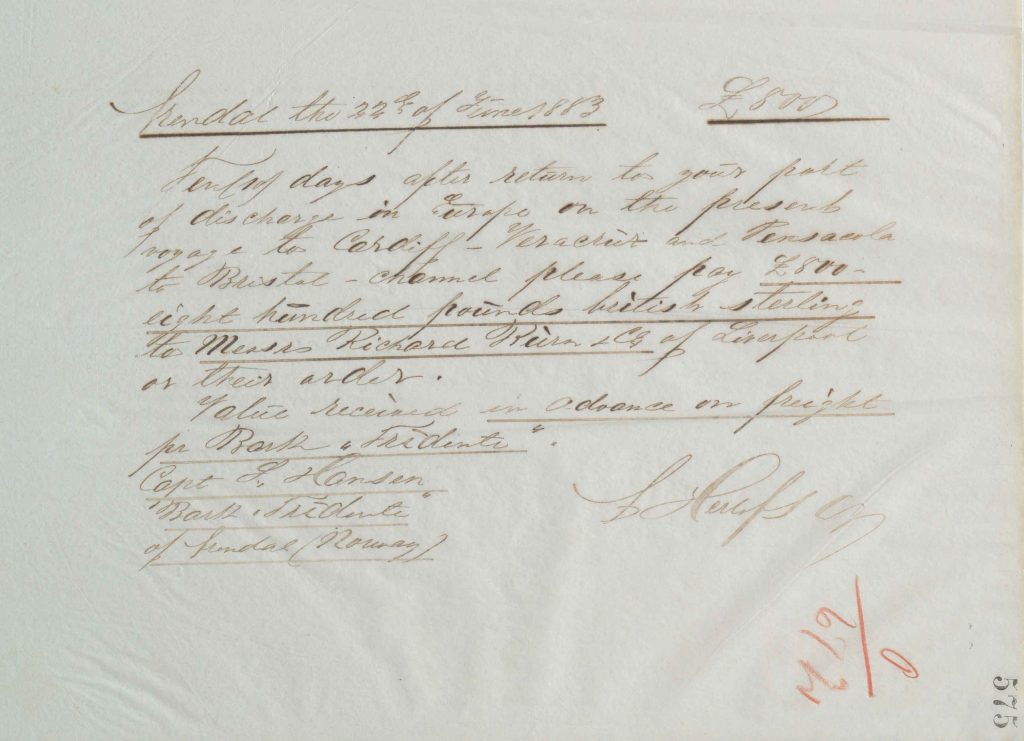 Arendal the 22de of June 1883 £800
Ten (10) days after return to your port
of discharge in Europe on the present
voyage to Cardiff - Veracruz and Pensacola
to Bristol - channel please pay £800-
eight hundred pounds british sterling
to Messrs Richard & Co of Liverpool
or their order.
Value received in advance on freight
pr Bark "Tridente".
Capt Hansen
Bark "Tridente"
of Arendal (Norway)
575